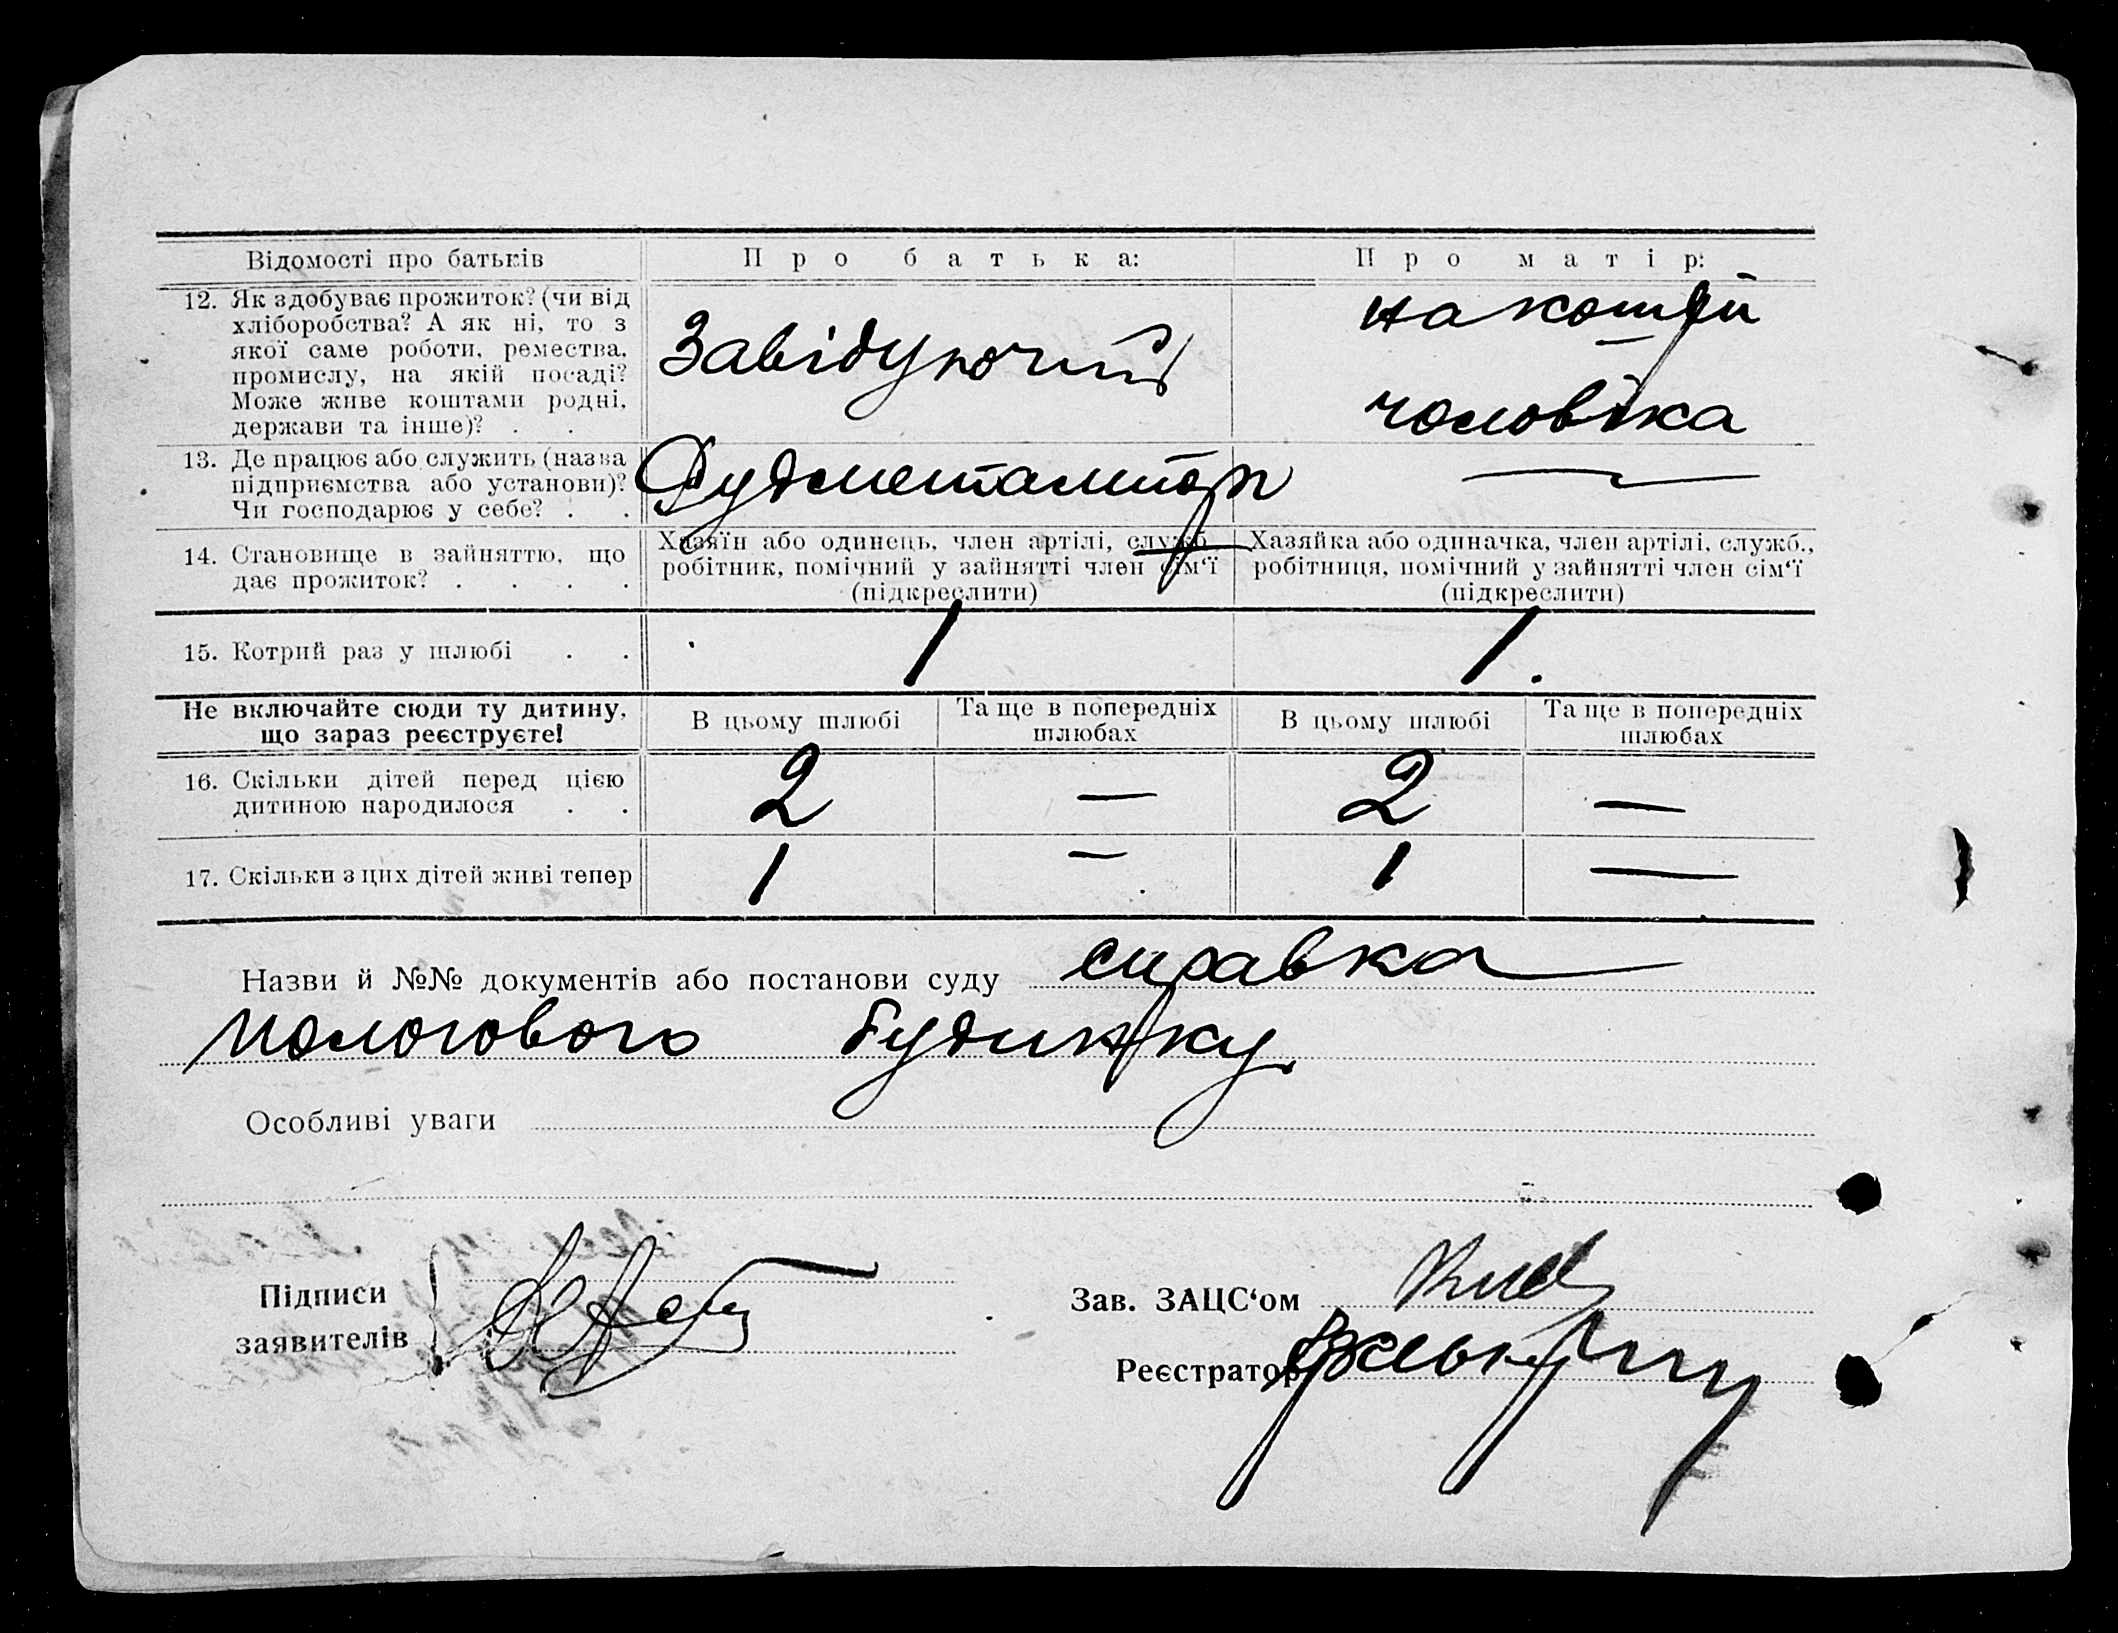 Відомості про батьків
Про батька:
Про матір:
12. Як здобуває прожиток? (чи від
хліборобства? А як ні, то з
якої саме роботи, ремества,
промислу, на якій посаді?
Може живе коштами родні,
держави та інше)? . .
Завідуючий
на кошти
чоловіка
13. Де працює або служить (назва
підприємства або установи)?
Чи господарює у себе? . .
—
14. Становище в зайняттю, що
дає прожиток? . . . .
Хазяїн або одинець, член артілі, служб.
робітник, помічний у зайнятті член сім‘ї
(підкреслити)
Хазяйка або одиначка, член артілі, служб.,
робітниця, помічний у зайнятті член сім‘ї
(підкреслити)
15. Котрий раз у шлюбі . .
1
1.
Не включайте сюди ту дитину,
що зараз реєструєте!
В цьому шлюбі
Та ще в попередніх
шлюбах
В цьому шлюбі
Та ще в попередніх
шлюбах
16. Скільки дітей перед цією
дитиною народилося . .
2 — 2 —
17. Скільки з цих дітей живі тепер
1 — 1 —
Назви й №№ документів або постанови суду справка
пологового будинку
Особливі уваги
Підписи
заявителів
Зав. ЗАЦС‘ом
Реєстратор